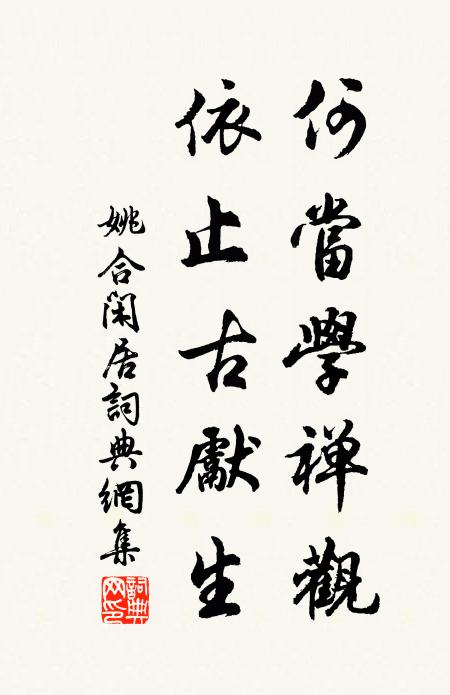 何當學禅觀
依止古獻生
姚合閑居詞典網集
詞典
网印